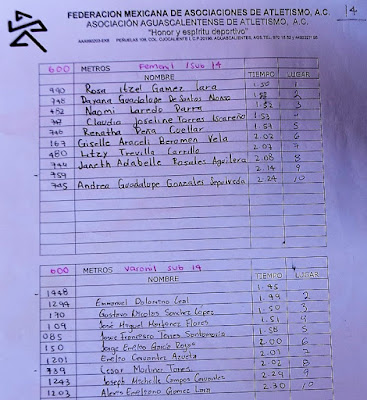 FEDERACION MEXICANA DE ASOCIACIONES DE ATLETISMO, A.C.
14
ASOCIACIÓN AGUASCALENTENSE DE ATLETISMO, A.C.
"Honor y espíritu deportivo"
600 METROS Femenil Sub 14
NOMBRE TIEMPO LUGAR
990 Rosa Itzel Gamez Lara 1
748 Dayana Guadalupe De Santos Alonso 2
482 Naomi Laredo Parra 1.52 3
Claudia Joseline Torres 1.53
746 Renatha Peña Cuellar 1.57 5
167 Giselle Araceli Beromen Vela 2.02 6
480 Litzy Treviña Carrillo 2.07 7
744 Janeth Adabelle Rosales Aguilera 2.08 8
759 2.14 9
745 Andrea Guadalupe Gonzales Sepulveda 2.24 10
600 METROS Varonil Sub 14
NOMBRE TIEMPO LUGAR
1448 1.45
1294 Emmanuel Dolores Leal 1.49 2
170 Gustavo Nicolas Sanchez López 1.50 3
109 José Miguel Martinez Flores 1.51 4
085 Juan Francisco Torres Santamaria 1.58 5
150 Jorge Emilio García Rojas 2.00 6
1201 Emilio Cervantes Azueta 2.01 7
789 Cesar Martinez Torres 2.02 8
1243 Joseph Michelle Campos Cervantes 2.29 9
1203 Alexis Emiliano Gomez Lara 2.30 10